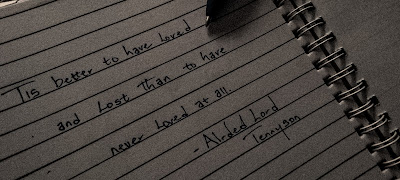 Tis better to have loved
and Lost Than to have
never Loved at all.
- Alrded Lord
Tennyson